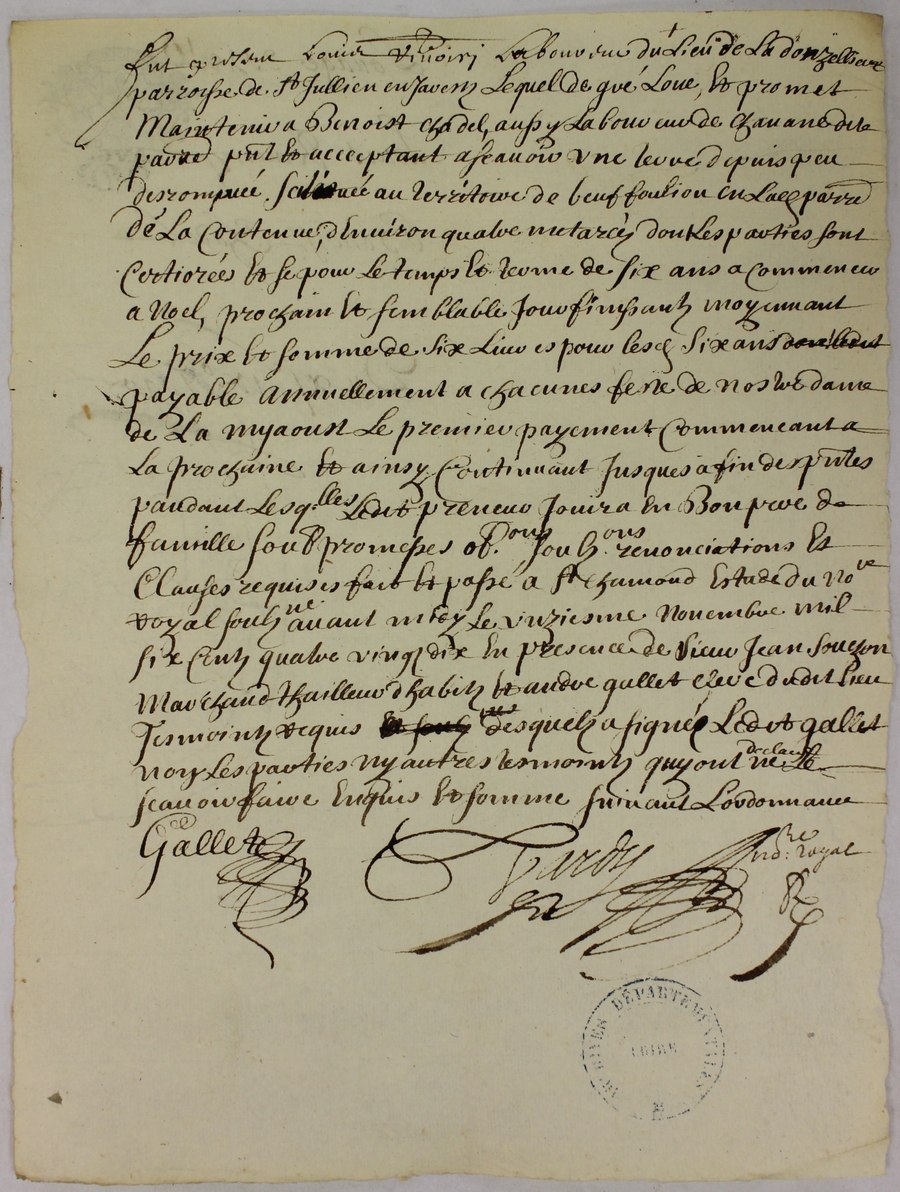 Fut present Louis Laboureur du Lieu de La donzelliere
parroisse de St Jullien en Javestz Lequel de gré Loue, et promet
Maintenir a Benoist chadel, aussy Laboureur de chavane dite
parre put et acceptant asscavoir une terre depuis peu
desrompuée scitituée au territoire de beuf foulion en Lad parre
de La Contenue, d'Environ quatre metarées dont Les parties sont
Certiorées Et se pour Le temps Et terme de six ans a Commencer
a Noel, prochain Et semblable Jour finissantz moyennant
Le prix Et somme de six Livres pour lesd six ans
payable annuellement a chacunes feste de nostre dame
de La myaoust Le premier payement Commencant a
La prochaine Et ainsy Continuant Jusques a fin desputes
pandant Lesq.lles Ledit preneur Jouira En Bon pere de
famille soub promesses ob.ons soub.ons renonciations Et
Clauses requises fait Et passé a St chamond Estude du No.re
royal soubz.né avant midy Le unziesme Novembre mil
six Centz quatre vingt dix En presence de sieur Jean Souchon
Marchand thailleur d'habitz Et andre gallet clerc dudit Lieu
Tesmointz requis desquelz a signé Ledit gallet
non Les parties ny autres tesmointz quy ont declaré ne Le
scavoir faire Enquis Et somme suivant Lordonnance
Gallet
Tardy
no.re Royal
ARCHIVES DÉPARTEMENTALES
LOIRE